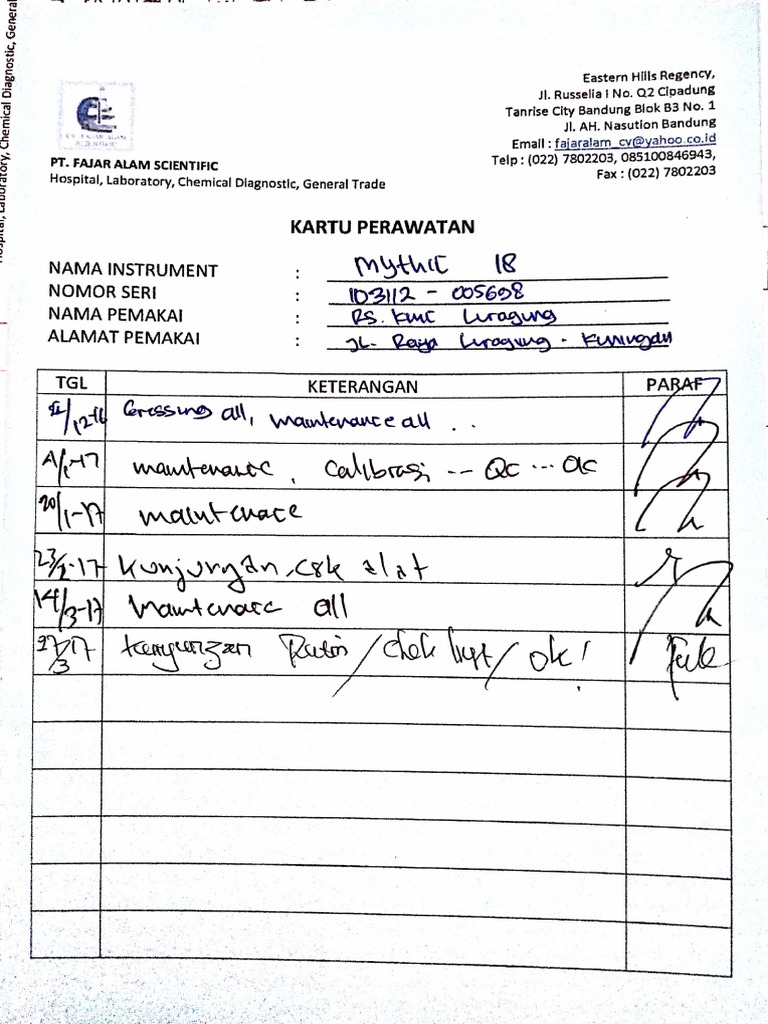 Hospital, Laboratory, Chemical Diagnostic, General
Eastern Hills Regency,
Jl. Russelia I No. Q2 Cipadung
Tanrise City Bandung Blok B3 No. 1
Jl. AH. Nasution Bandung
Email : fajaralam_cv@yahoo.co.id
Telp : (022) 7802203, 085100846943,
Fax : (022) 7802203
PT. FAJAR ALAM SCIENTIFIC
Hospital, Laboratory, Chemical Diagnostic, General Trade
KARTU PERAWATAN
NAMA INSTRUMENT : Mythic 18
NOMOR SERI : 103112 - 005698
NAMA PEMAKAI : RS. KMC Luragung
ALAMAT PEMAKAI : JL. Raya Luragung - Kuningan
TGL KETERANGAN PARAF
/12-16 all, maintenance all . .
4/1-17 maintenance, Calibrasi -- QC --- OK
20/1-17 maintenace
23/2-17 Kunjungan cek alat
14/3-17 Maintenace all
27/3 17 Kunjungan Rutin / Chek list / ok!